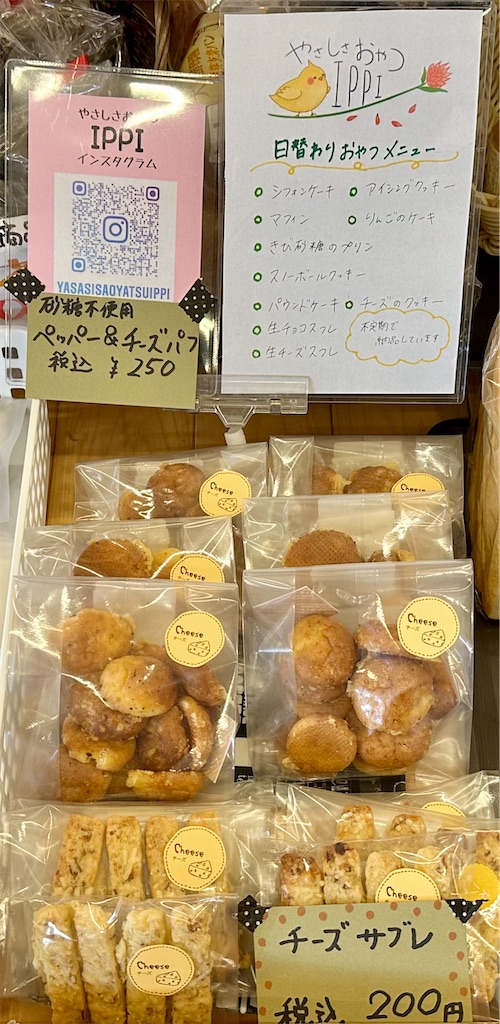 やさしさおやつ
IPPI
インスタグラム
YASASISAOYATSUIPPI
砂糖不使用
ペッパー&チーズパフ
税込 ¥250
やさしさおやつ
IPPI
日替わりおやつメニュー
シフォンケーキ アイシングクッキー
マフィン りんごのケーキ
きび砂糖のプリン
スノーボールクッキー
パウンドケーキ チーズのクッキー
生チョコスフレ
生チーズスフレ
不定期で
納品しています
Cheese
チーズ
Cheese
チーズ
Cheese
チーズ
Cheese
チーズ
Cheese
チーズ
Cheese
チーズ
Cheese
チーズ
Cheese
チーズ
チーズサブレ
税込 200円